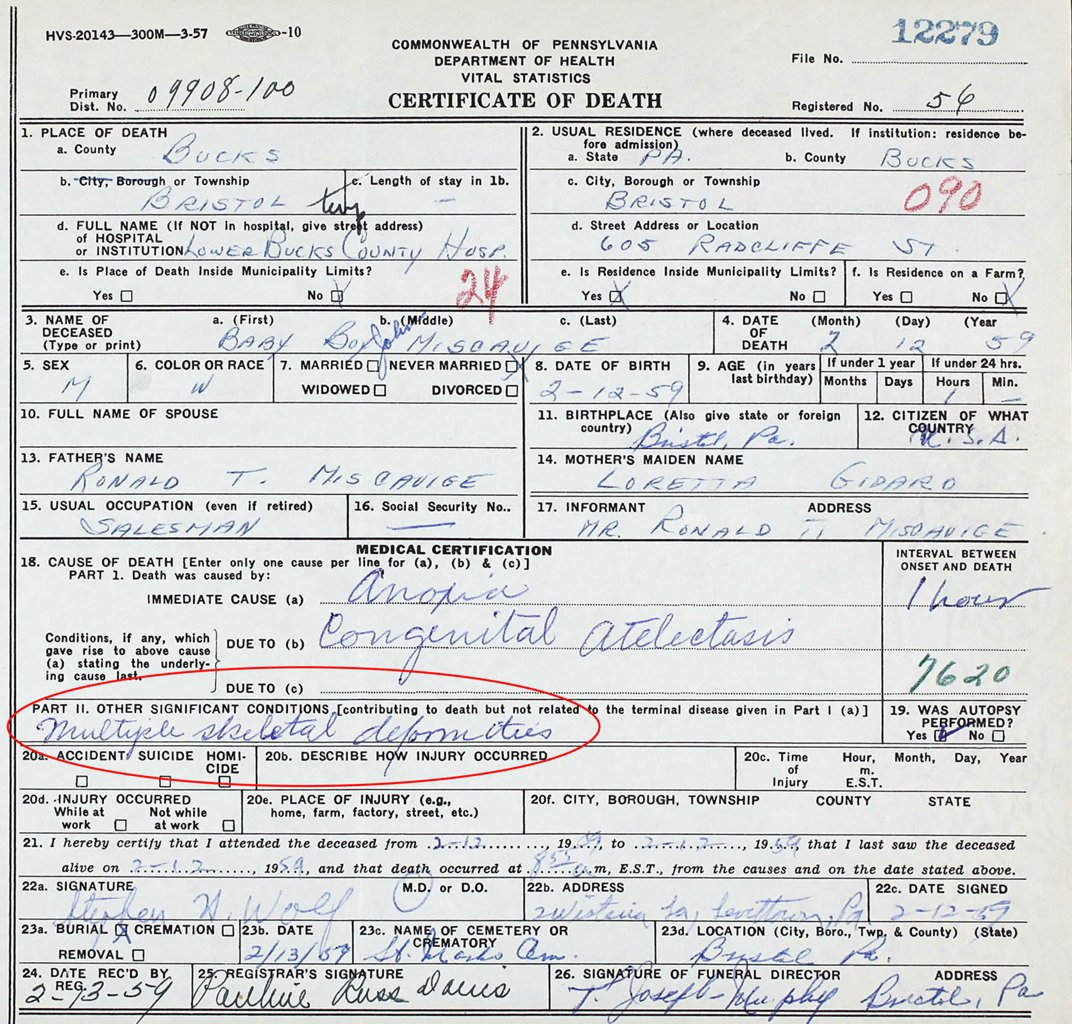 HVS-20143—300M—3-57 -10
12279
COMMONWEALTH OF PENNSYLVANIA
DEPARTMENT OF HEALTH
VITAL STATISTICS
CERTIFICATE OF DEATH
File No.
Primary Dist. No. 09908-100
Registered No. 56
1. PLACE OF DEATH
a. County BUCKS
b. City, Borough or Township BRISTOL twp
c. Length of stay in 1b. —
d. FULL NAME (If NOT in hospital, give street address) of HOSPITAL or INSTITUTION LOWER BUCKS COUNTY HOSP.
e. Is Place of Death Inside Municipality Limits?
Yes No
24
2. USUAL RESIDENCE (where deceased lived. If institution: residence before admission)
a. State PA. b. County BUCKS
c. City, Borough or Township BRISTOL
090
d. Street Address or Location 605 RADCLIFFE ST.
e. Is Residence Inside Municipality Limits? f. Is Residence on a Farm?
Yes No Yes No
3. NAME OF DECEASED (Type or print) a. (First) b. (Middle) c. (Last)
BABY BOY John MISCAVIGE
4. DATE OF DEATH (Month) (Day) (Year
2 12 59
5. SEX M
6. COLOR OR RACE W
7. MARRIED NEVER MARRIED
WIDOWED DIVORCED
8. DATE OF BIRTH 2-12-59
9. AGE (in years last birthday) If under 1 year If under 24 hrs.
Months Days Hours Min.
1 —
10. FULL NAME OF SPOUSE
11. BIRTHPLACE (Also give state or foreign country) Bristol, Pa.
12. CITIZEN OF WHAT COUNTRY U.S.A.
13. FATHER'S NAME
RONALD T. MISCAVIGE
14. MOTHER'S MAIDEN NAME
LORETTA GIDARO
15. USUAL OCCUPATION (even if retired)
SALESMAN
16. Social Security No..
—
17. INFORMANT ADDRESS
MR. RONALD T. MISCAVIGE
MEDICAL CERTIFICATION
18. CAUSE OF DEATH [Enter only one cause per line for (a), (b) & (c)]
INTERVAL BETWEEN ONSET AND DEATH
PART 1. Death was caused by:
IMMEDIATE CAUSE (a) Anoxia 1 hour
Conditions, if any, which gave rise to above cause (a) stating the underlying cause last.
DUE TO (b) Congenital Atelectasis
DUE TO (c)
7620
PART II. OTHER SIGNIFICANT CONDITIONS [contributing to death but not related to the terminal disease given in Part I (a)]
Multiple skeletal deformities
19. WAS AUTOPSY PERFORMED?
Yes No
20a. ACCIDENT SUICIDE HOMICIDE
20b. DESCRIBE HOW INJURY OCCURRED
20c. Time of Injury Hour, Month, Day, Year
m. E.S.T.
20d. INJURY OCCURRED
While at work Not while at work
20e. PLACE OF INJURY (e.g., home, farm, factory, street, etc.)
20f. CITY, BOROUGH, TOWNSHIP COUNTY STATE
21. I hereby certify that I attended the deceased from 2-12, 1959, to 2-12, 1959, that I last saw the deceased
alive on 2-12, 1959, and that death occurred at 8 a.m, E.S.T., from the causes and on the date stated above.
22a. SIGNATURE M.D. or D.O.
Stephen H. Wolf
22b. ADDRESS
Levittown, Pa
22c. DATE SIGNED
2-12-59
23a. BURIAL CREMATION
REMOVAL
23b. DATE
2/13/59
23c. NAME OF CEMETERY OR CREMATORY
St. Marks Cem.
23d. LOCATION (City, Boro., Twp. & County) (State)
Bristol Pa.
24. DATE REC'D BY REG.
2-13-59
25. REGISTRAR'S SIGNATURE
Pauline Russ Davis
26. SIGNATURE OF FUNERAL DIRECTOR ADDRESS
T. Joseph Murphy Bristol, Pa